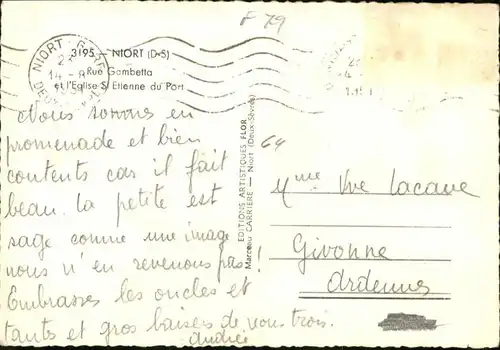 F 79
3195 — NIORT (D-S)
Rue Gambetta
et l'Eglise St Etienne du Port
NIORT GARE
14 - 8
Nous sommes en
promenade et bien
contents car il fait
beau. La petite est
sage comme une image
nous n'en revenons pas!
Embrasses les oncles et
tants et gros baisers de vous trois.
Andrée
EDITIONS ARTISTIQUES FLOR
Marceau CARRIERE - Niort (Deux-Sèvres)
64
Mme Vve Lacave
Givonne
Ardennes